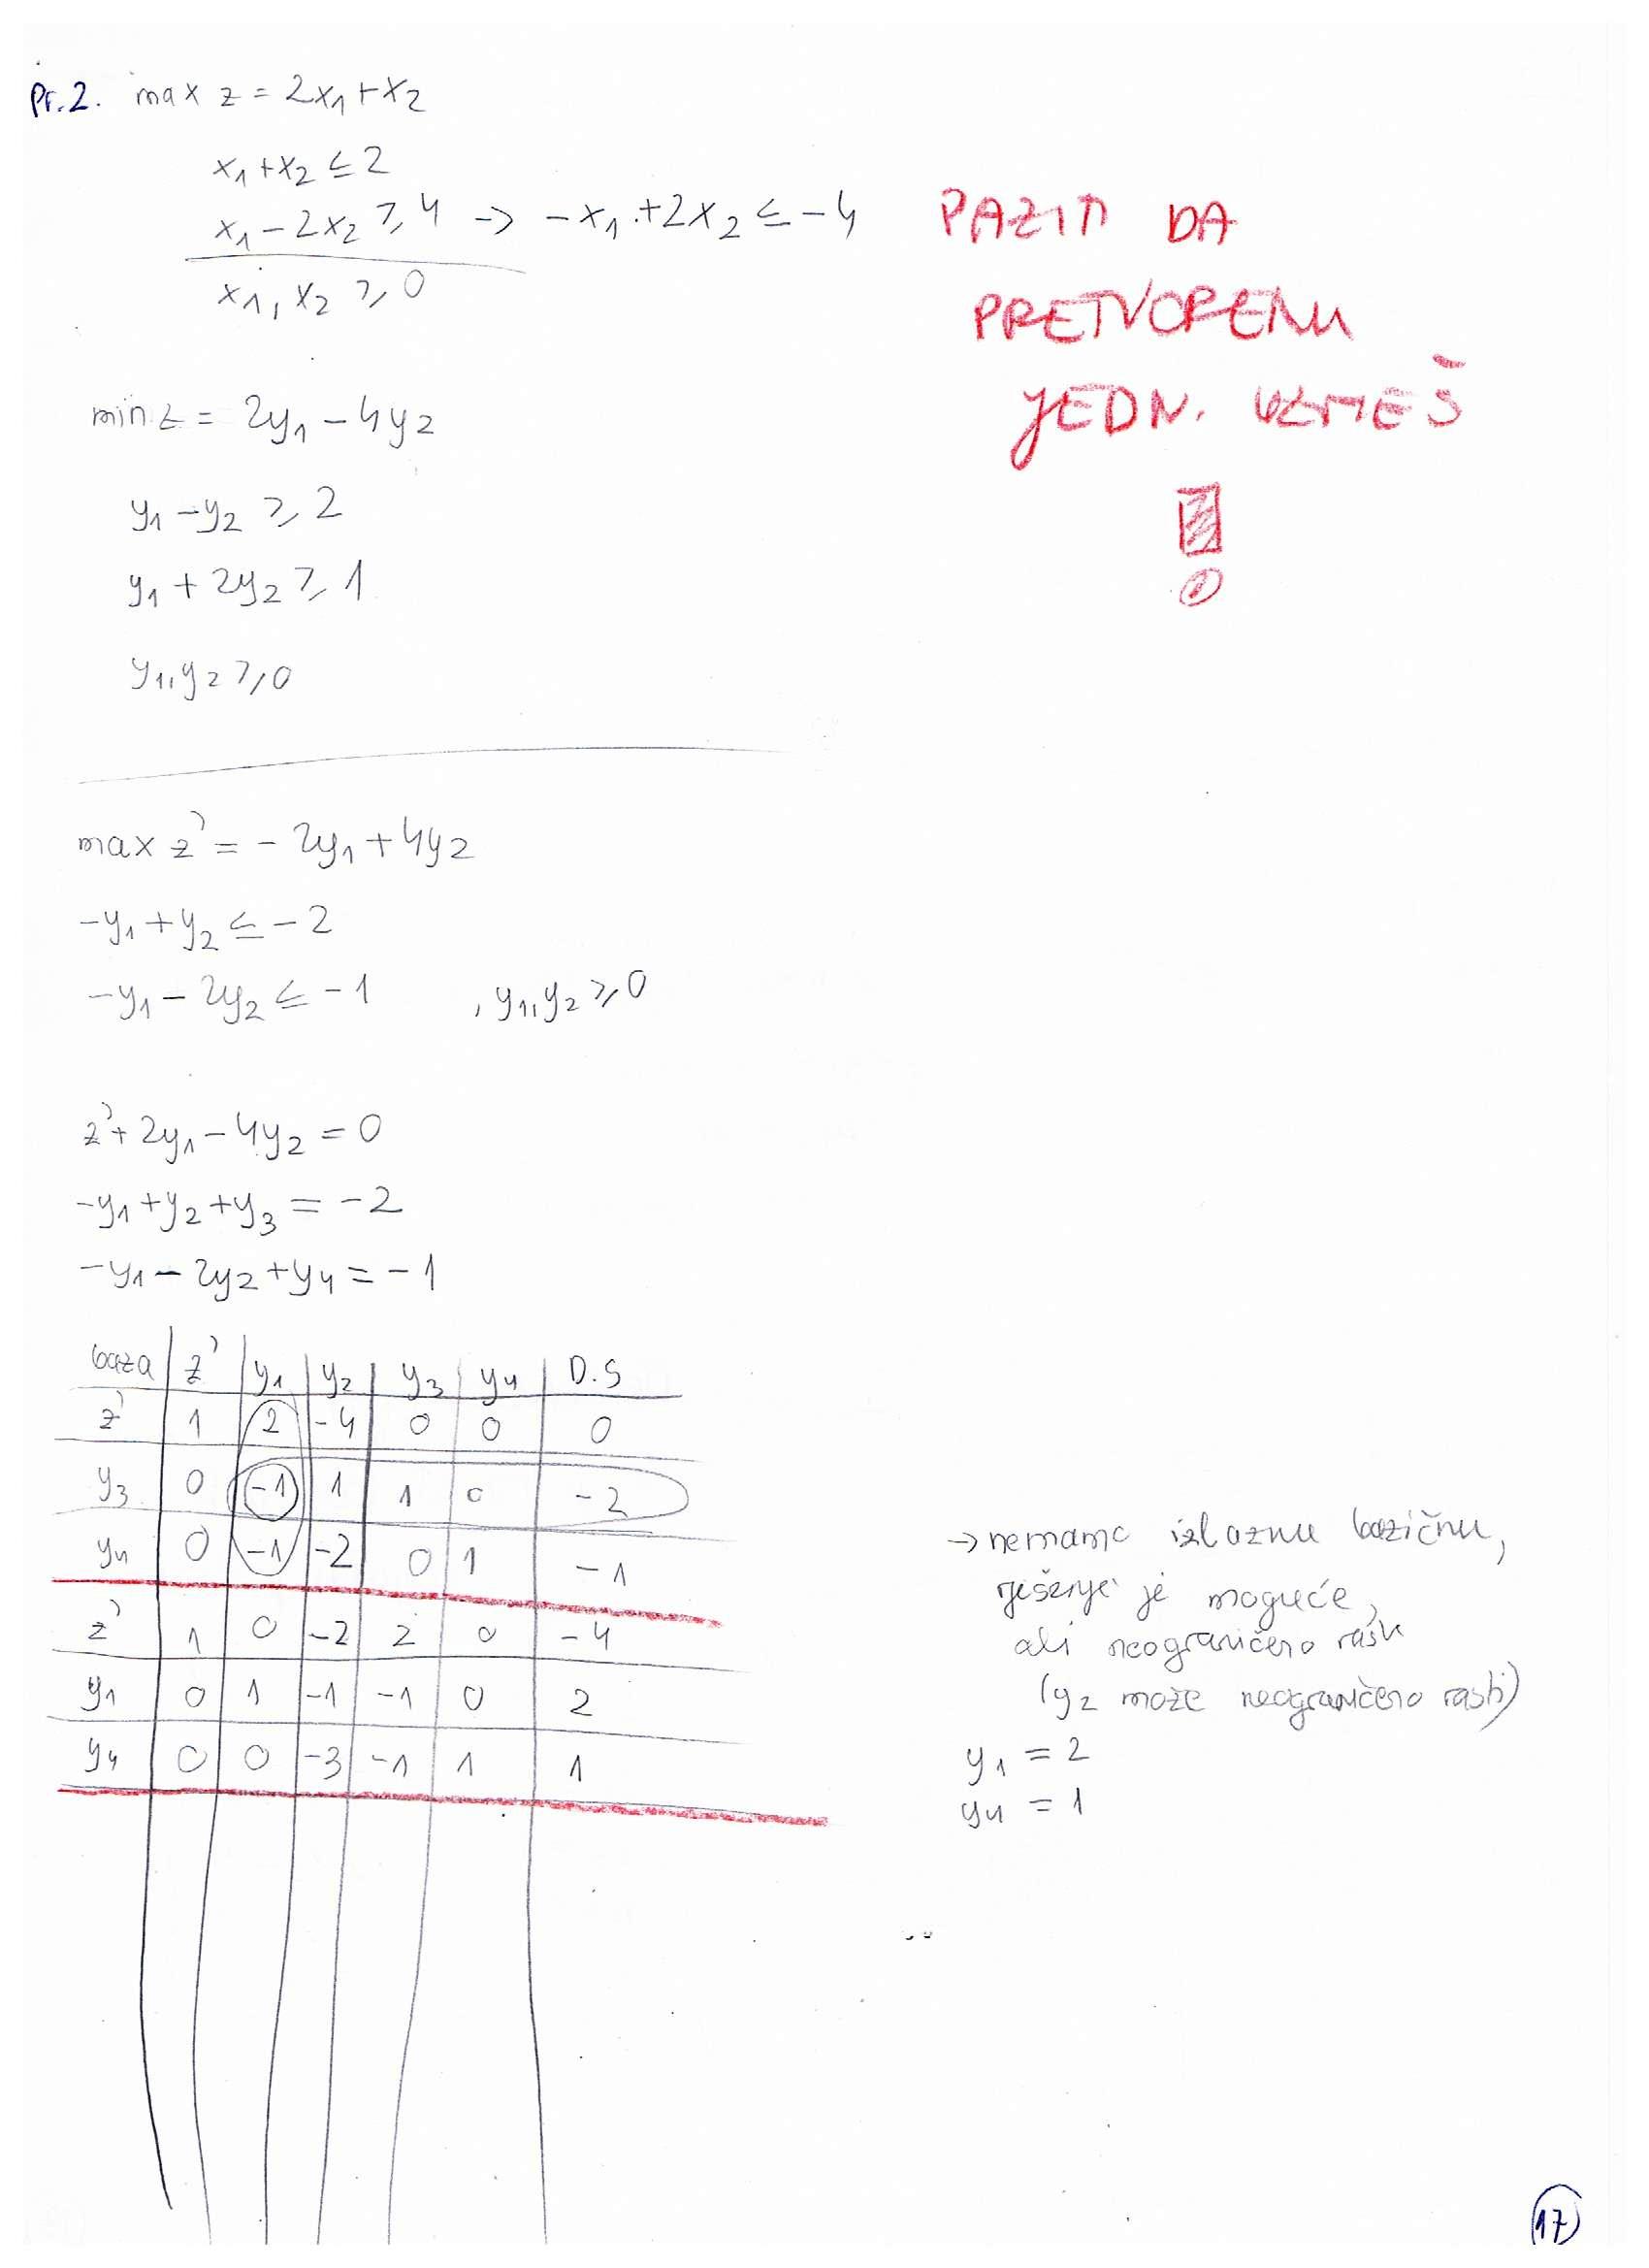 Pr.2. max z = 2x₁+x₂
x₁+x₂ ≤ 2
x₁-2x₂ ≥ 4 → -x₁+2x₂ ≤ -4
x₁, x₂ ≥ 0
PAZITI DA
PRETVORENU
JEDN. UZMEŠ
!
min z = 2y₁-4y₂
y₁-y₂ ≥ 2
y₁+2y₂ ≥ 1
y₁,y₂ ≥ 0
max z' = -2y₁+4y₂
-y₁+y₂ ≤ -2
-y₁-2y₂ ≤ -1 , y₁,y₂ ≥ 0
z'+2y₁-4y₂ = 0
-y₁+y₂+y₃ = -2
-y₁-2y₂+y₄ = -1
baza z' y₁ y₂ y₃ y₄ D.S
z' 1 2 -4 0 0 0
y₃ 0 -1 1 1 0 -2
y₄ 0 -1 -2 0 1 -1
z' 1 0 -2 2 0 -4
y₁ 0 1 -1 -1 0 2
y₄ 0 0 -3 -1 1 1
→ nemamo izlaznu bazičnu,
rješenje je moguće,
ali neograničeno raste
(y₂ može neograničeno rasti)
y₁ = 2
y₄ = 1
17